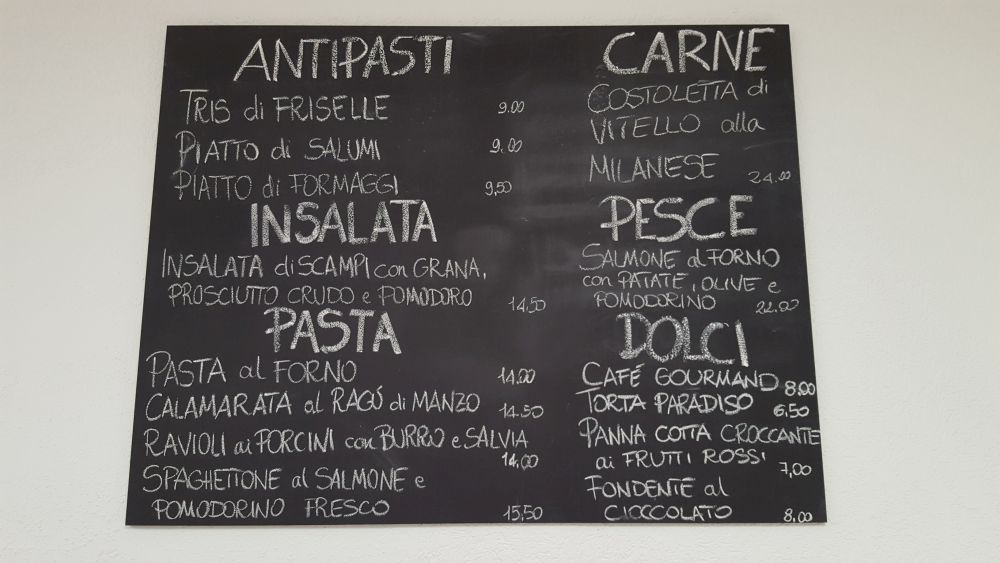 ANTIPASTI
TRIS di FRISELLE 9.00
PIATTO di SALUMI 9.00
PIATTO di FORMAGGI 9,50
INSALATA
INSALATA di SCAMPI con GRANA,
PROSCIUTTO CRUDO e POMODORO 14,50
PASTA
PASTA al FORNO 14.00
CALAMARATA al RAGÚ di MANZO 14.50
RAVIOLI ai PORCINI con BURRO e SALVIA
14,00
SPAGHETTONE al SALMONE e
POMODORINO FRESCO 15,50
CARNE
COSTOLETTA di
VITELLO alla
MILANESE 24.00
PESCE
SALMONE al FORNO
con PATATE, OLIVE e
POMODORINO 22.00
DOLCI
CAFÉ GOURMAND 8,00
TORTA PARADISO 6,50
PANNA COTTA CROCCANTE
ai FRUTTI ROSSI 7,00
FONDENTE al
CIOCCOLATO 8,00